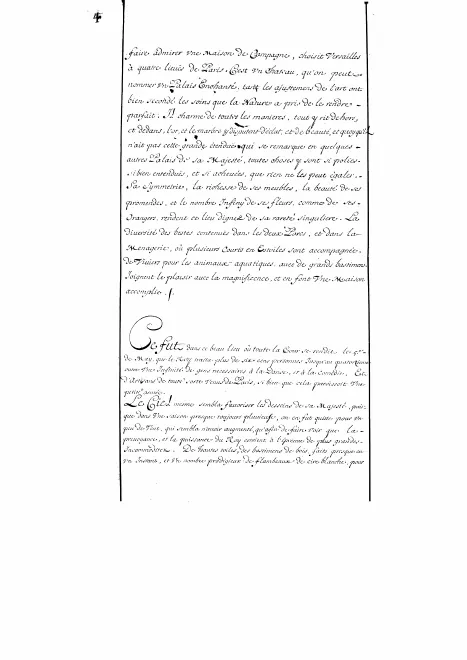 4
faire admirer vne Maison de Campagne, choisit Versailles
à quatre lieuës de Paris. C'est vn Chateau, qu'on peut
nommer vn Palais Enchanté, tant les ajustemens de l'art ont
bien secondé les soins que la Nature a pris de le rendre
parfait. Il charme de toutes les manieres, tout y rit dehors,
et dedans, l'or, et le marbre y disputent d'éclat, et de beauté, et quoyqu'il
n'ait pas cette grande étenduë qui se remarque en quelques
autres Palais de sa Majesté, toutes choses y sont si polies
si bien entenduës, et si acheuées, que rien ne les peut égaler.
Sa Symmetrie, la richesse de ses meubles, la beauté de ses
promenades, et le nombre Infiny de ses fleurs, comme de ses
Orangers, rendent ce lieu digne de sa rareté singuliere. La
diuersité des bestes contenuës dans les deux Parcs, et dans la
Menagerie, où plusieurs Courts en Estoiles sont accompagnées
de Viuiers pour les animaux aquatiques, auec de grands bastimens
Joignent le plaisir auec la magnificence, et en font Vne Maison
accomplie.
Ce fut dans ce beau lieu où toute la Cour se rendit, le 5.e
de May, que le Roy traita plus de six cens personnes Jusqu'au quatorziéme
outre Vne Infinité de gens necessaires à la Dance, et à la comedie, Et
d'Artisans de toute sorte Venus de Paris, si bien que cela paroissoit Vne
petite armée.
Le Ciel mesme sembla fauoriser les desseins de sa Majesté, puis
que dans Vne saison presque toujours pluuieuse, on en fut quitte pour Vn
peu de Vent, qui sembla n'auoir augmenté, qu'afin de faire voir que la
preuoyance, et la puissance du Roy estoient à l'épreuue de plus grandes
Incommoditez. De hautes toiles, des bastimens de bois, faits presque en
Vn Instant, et Vn nombre prodigieux de flambeaux de cire blanche, pour